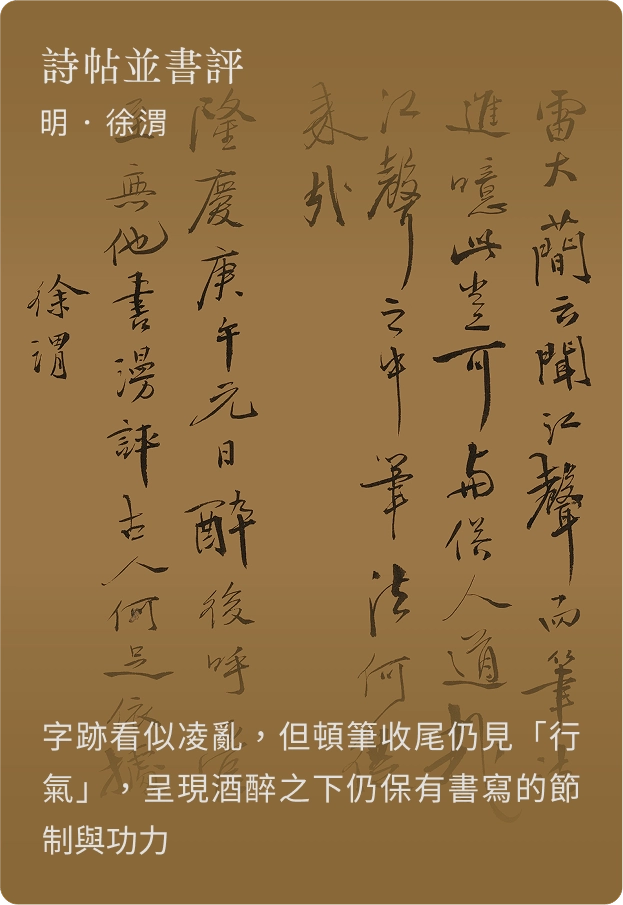 詩帖並書評
明．徐渭
雷大簡云聞江聲而筆法
進噫此豈可與俗人道哉
江聲之中筆法何從
來哉
隆慶庚午元日醉後呼
無他書漫評古人何足依據
徐渭
字跡看似凌亂，但頓筆收尾仍見「行
氣」，呈現酒醉之下仍保有書寫的節
制與功力